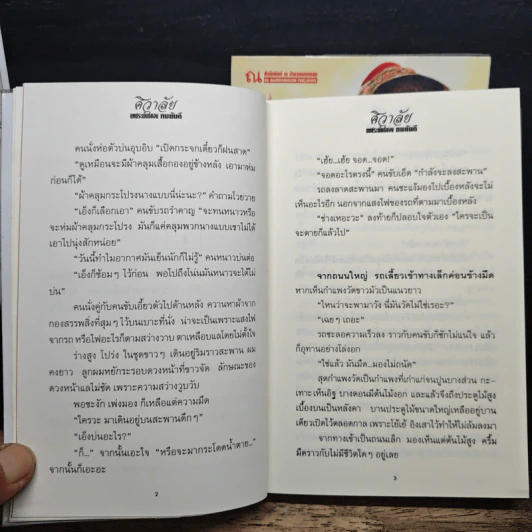 ณ
ศิวาลัย
คนนั่งห่อตัวบ่นอุบอิบ “เปิดกระจกเดี๋ยวก็ฝนสาด”
“ดูเหมือนจะมีผ้าคลุมเสื้อกองอยู่ข้างหลัง เอามาห่ม
ก่อนก็ได้”
“ผ้าคลุมกระโปรงนางแบบนี่น่ะนะ?” คำถามโวยวาย
“เอ็งก็เลือกเอา” คนขับรถรำคาญ “จะทนหนาวหรือ
จะห่มผ้าคลุมกระโปรง มันก็แค่คลุมพวกนางแบบเขาไม่ได้
เอาไปนุ่งสักหน่อย”
“วันนี้ทำไมอากาศมันเย็นนักก็ไม่รู้” คนหนาวบ่นต่อ
“เอ็งก็ซ้อมๆ ไว้ก่อน พอไปถึงโน่นมันหนาวจะได้ไม่
บ่น”
คนนั่งคู่กับคนขับเอี้ยวตัวไปด้านหลัง ควานหาผ้าจาก
กองสรรพสิ่งที่สุมๆ ไว้บนเบาะที่นั่ง น่าจะเป็นเพราะแสงไฟ
จากรถ หรือไฟอะไรก็ตามสว่างวาบ ตาเหลือบแลโดยไม่ตั้งใจ
ร่างสูง โปร่ง ในชุดขาวๆ เดินอยู่ริมราวสะพาน ผม
คงยาว ลูกผมหยักระรอบดวงหน้าที่ขาวจัด ลักษณะของ
ดวงหน้าแลไม่ชัด เพราะความสว่างวูบวับ
พอชะงัก เพ่งมอง ก็เหลือแต่ความมืด
“ใครวะ มาเดินอยู่บนสะพานดึกๆ”
“เอ็งบ่นอะไร?”
“ก็...” จากนั้นเอะใจ “หรือจะมากระโดดน้ำตาย...”
จากนั้นก็เอะอะ
2
ศิวาลัย
“เฮ้ย...เฮ้ย จอด...จอด!”
“จอดอะไรตรงนี้” คนขับเอ็ด “กำลังจะลงสะพาน”
รถลงลาดสะพานมา คนชะแง้มองไปเบื้องหลังจะไม่
เห็นอะไรอีก นอกจากแสงไฟของรถที่ตามมาเบื้องหลัง
“ช่างเหอะวะ” ลงท้ายก็ปลอบใจตัวเอง “ใครจะเป็น
จะตายก็แล้วไป”
จากถนนใหญ่ รถเลี้ยวเข้าทางเล็กค่อนข้างมืด
หากเห็นกำแพงวัดขาวมัวเป็นแนวยาว
“ไหนว่าจะพามาวัง นี่มันวัดไม่ใช่เรอะ?”
“เฉยๆ เถอะ”
รถชะลอความเร็วลง ราวกับคนขับก็ชักไม่แน่ใจ แล้ว
ก็อุทานอย่างโล่งอก
“ใช่แล้ว มันมืด...มองไม่ถนัด”
สุดกำแพงวัดเป็นกำแพงที่เก่าแก่จนปูนบางส่วน กะ-
เทาะเห็นอิฐ บางตอนมีต้นไม้งอก และแล้วจึงถึงประตูไม้สูง
เบื้องบนเป็นหลังคา บานประตูไม้ขนาดใหญ่เหลืออยู่บาน
เดียวเปิดไว้ตลอดกาล เพราะโย้เย้ อิงเสาไว้ทำให้ไม่ล้มลงมา
จากทางเข้าเป็นถนนเล็ก มองเห็นแต่ต้นไม้สูง ครึ้ม
มืดราวกับไม่มีชีวิตใดๆ อยู่เลย
3